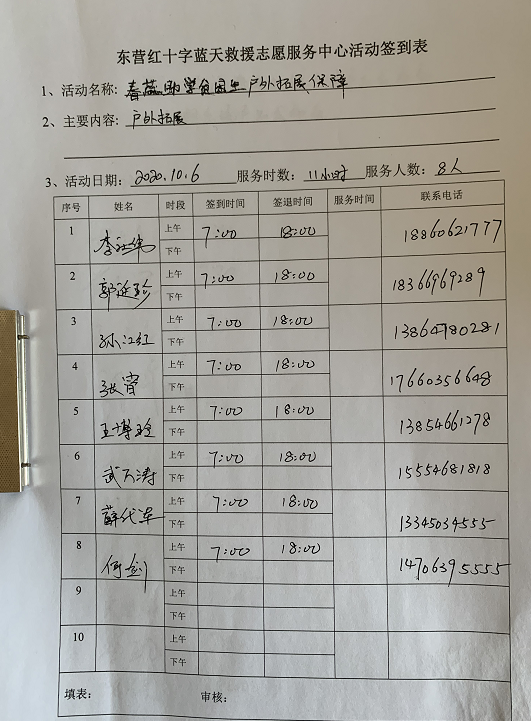 东营红十字蓝天救援志愿服务中心活动签到表
1、活动名称: 春蕾助学贫困生户外拓展保障
2、主要内容: 户外拓展
3、活动日期: 2020.10.6 服务时数: 11小时 服务人数: 8人
序号 姓名 时段 签到时间 签退时间 服务时间 联系电话
1 李 上午 7:00 18:00 18860621777
下午
2 郭 上午 7:00 18:00 18366969289
下午
3 孙江红 上午 7:00 18:00
下午
4 张霄 上午 7:00 18:00 17660356648
下午
5 王博 上午 7:00 18:00 13854661278
下午
6 武 涛 上午 7:00 18:00 15554681818
下午
7 薛代军 上午 7:00 18:00 13345034555
下午
8 何剑 上午 7:00 18:00 14706395555
下午
9 上午
下午
10 上午
下午
填表: 审核: